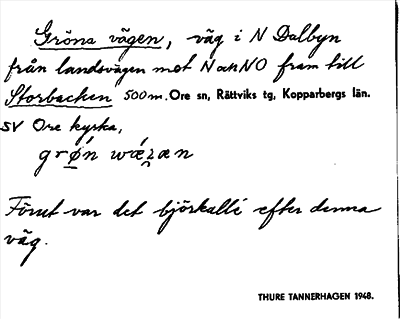 Gröna vägen, väg i N Dalbyn
från landsvägen mot N och NO fram till
Storbacken 500m. Ore sn, Rättviks tg, Kopparbergs län.
SV Ore kyrka,
grǿ̜n wǽʒæn
Förut var det björkallé efter denna
väg.
THURE TANNERHAGEN 1948.